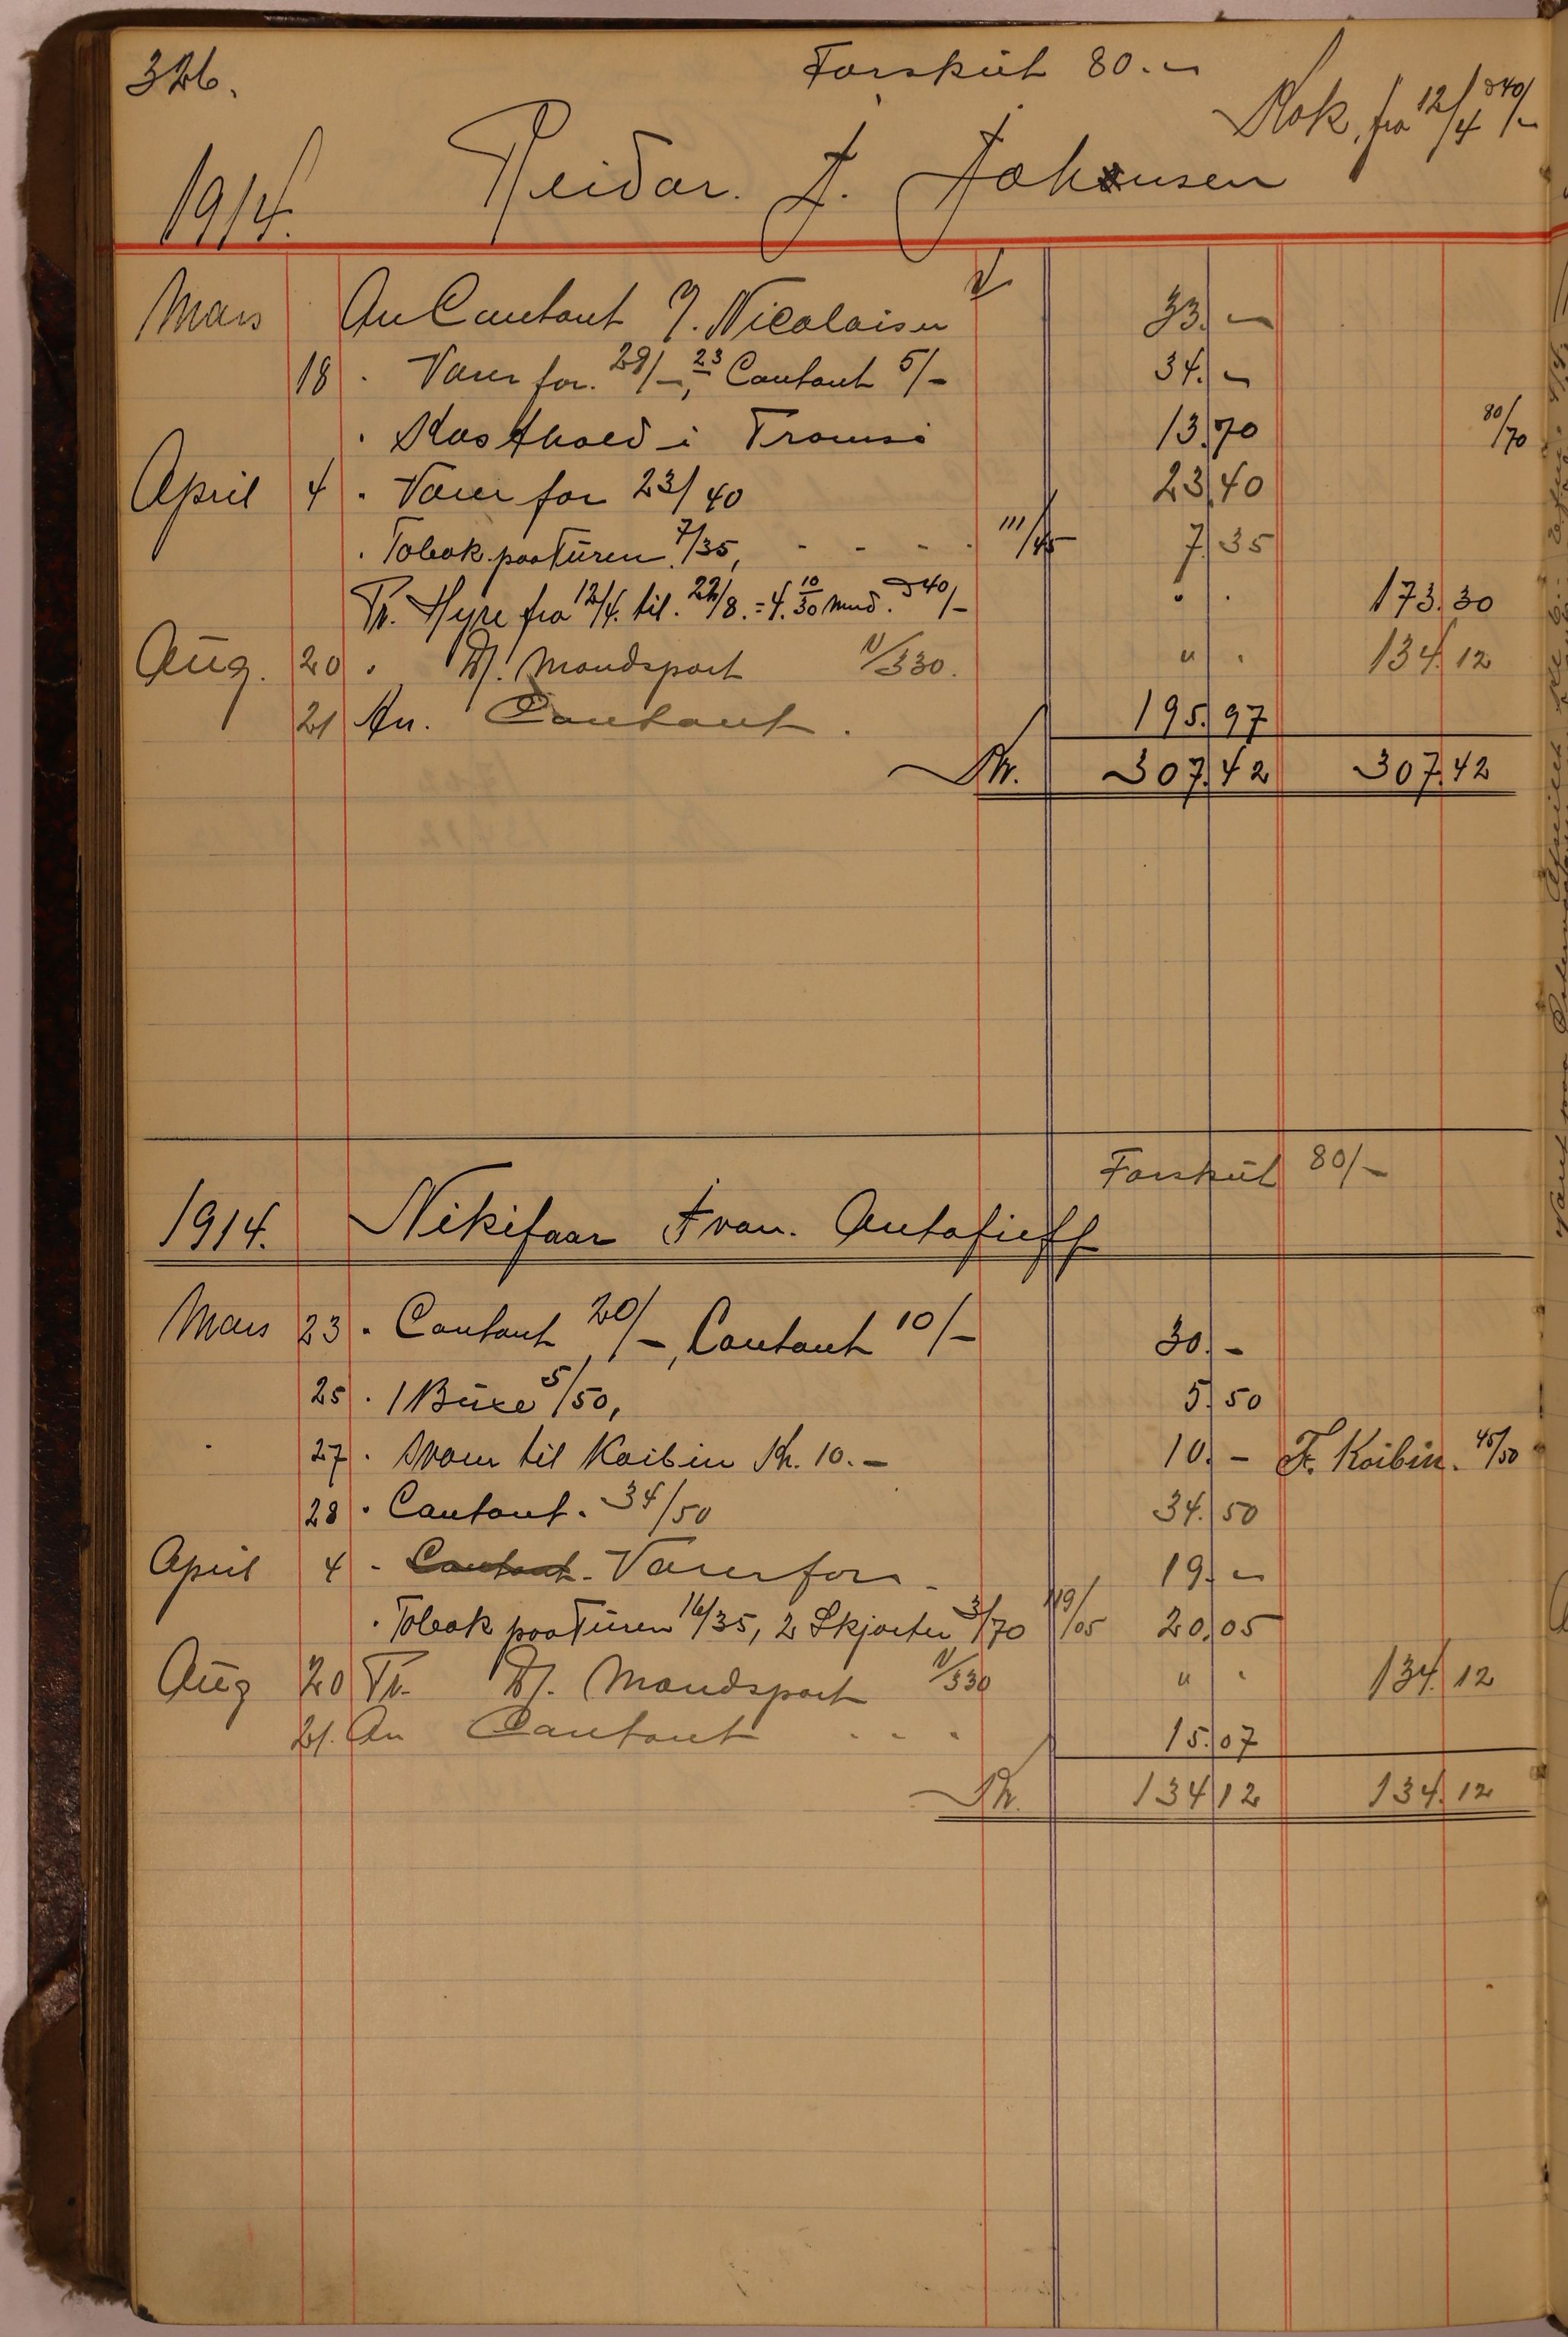 326.
Forsküt 80.-
Kok, fra 12/4 à 40/-
1914. Reidar. J. Johansen
Mars An Contant J. Nicolaisen 33. -
18 . Varer for. 29/-, 23 Contant 5/- 34. -
. Kosthold i Tromsö 13.70 80/70
April 4 . Varer for 23/40 23.40
. Tobak paa Türen. 7/35, - - - . 111/45 7.35
Pr. Hyre fra 12/4. til. 22/8. = 4. 10/30 Mnd. à 40/- " . 173.30
Aug. 20 . Dj. Mandspart 1/330. " . 134.12
21 An. Contant . 195.97
Kr. 307.42 307.42
Forsküt 80/-
1914. Nikifaar Ivan. Antafieff
Mars 23 . Contant 20/-, Contant 10/- 30. -
25 . 1 Büxe 5/50, 5.50
. 27 . Svarer til Koibin Kr. 10. - 10. - F. Koibin. 45/50
28 . Contant. 34/50 34.50
April 4 - Contant. Varer for . 19. -
. Tobak paa Türen 16/35, 2 Skjorter 3/70 119/05 20.05
Aug 20 Pr. Dj. Mandspart 1/330 " . 134.12
21. An Contant . . . 15.07
Kr. 134.12 134.12